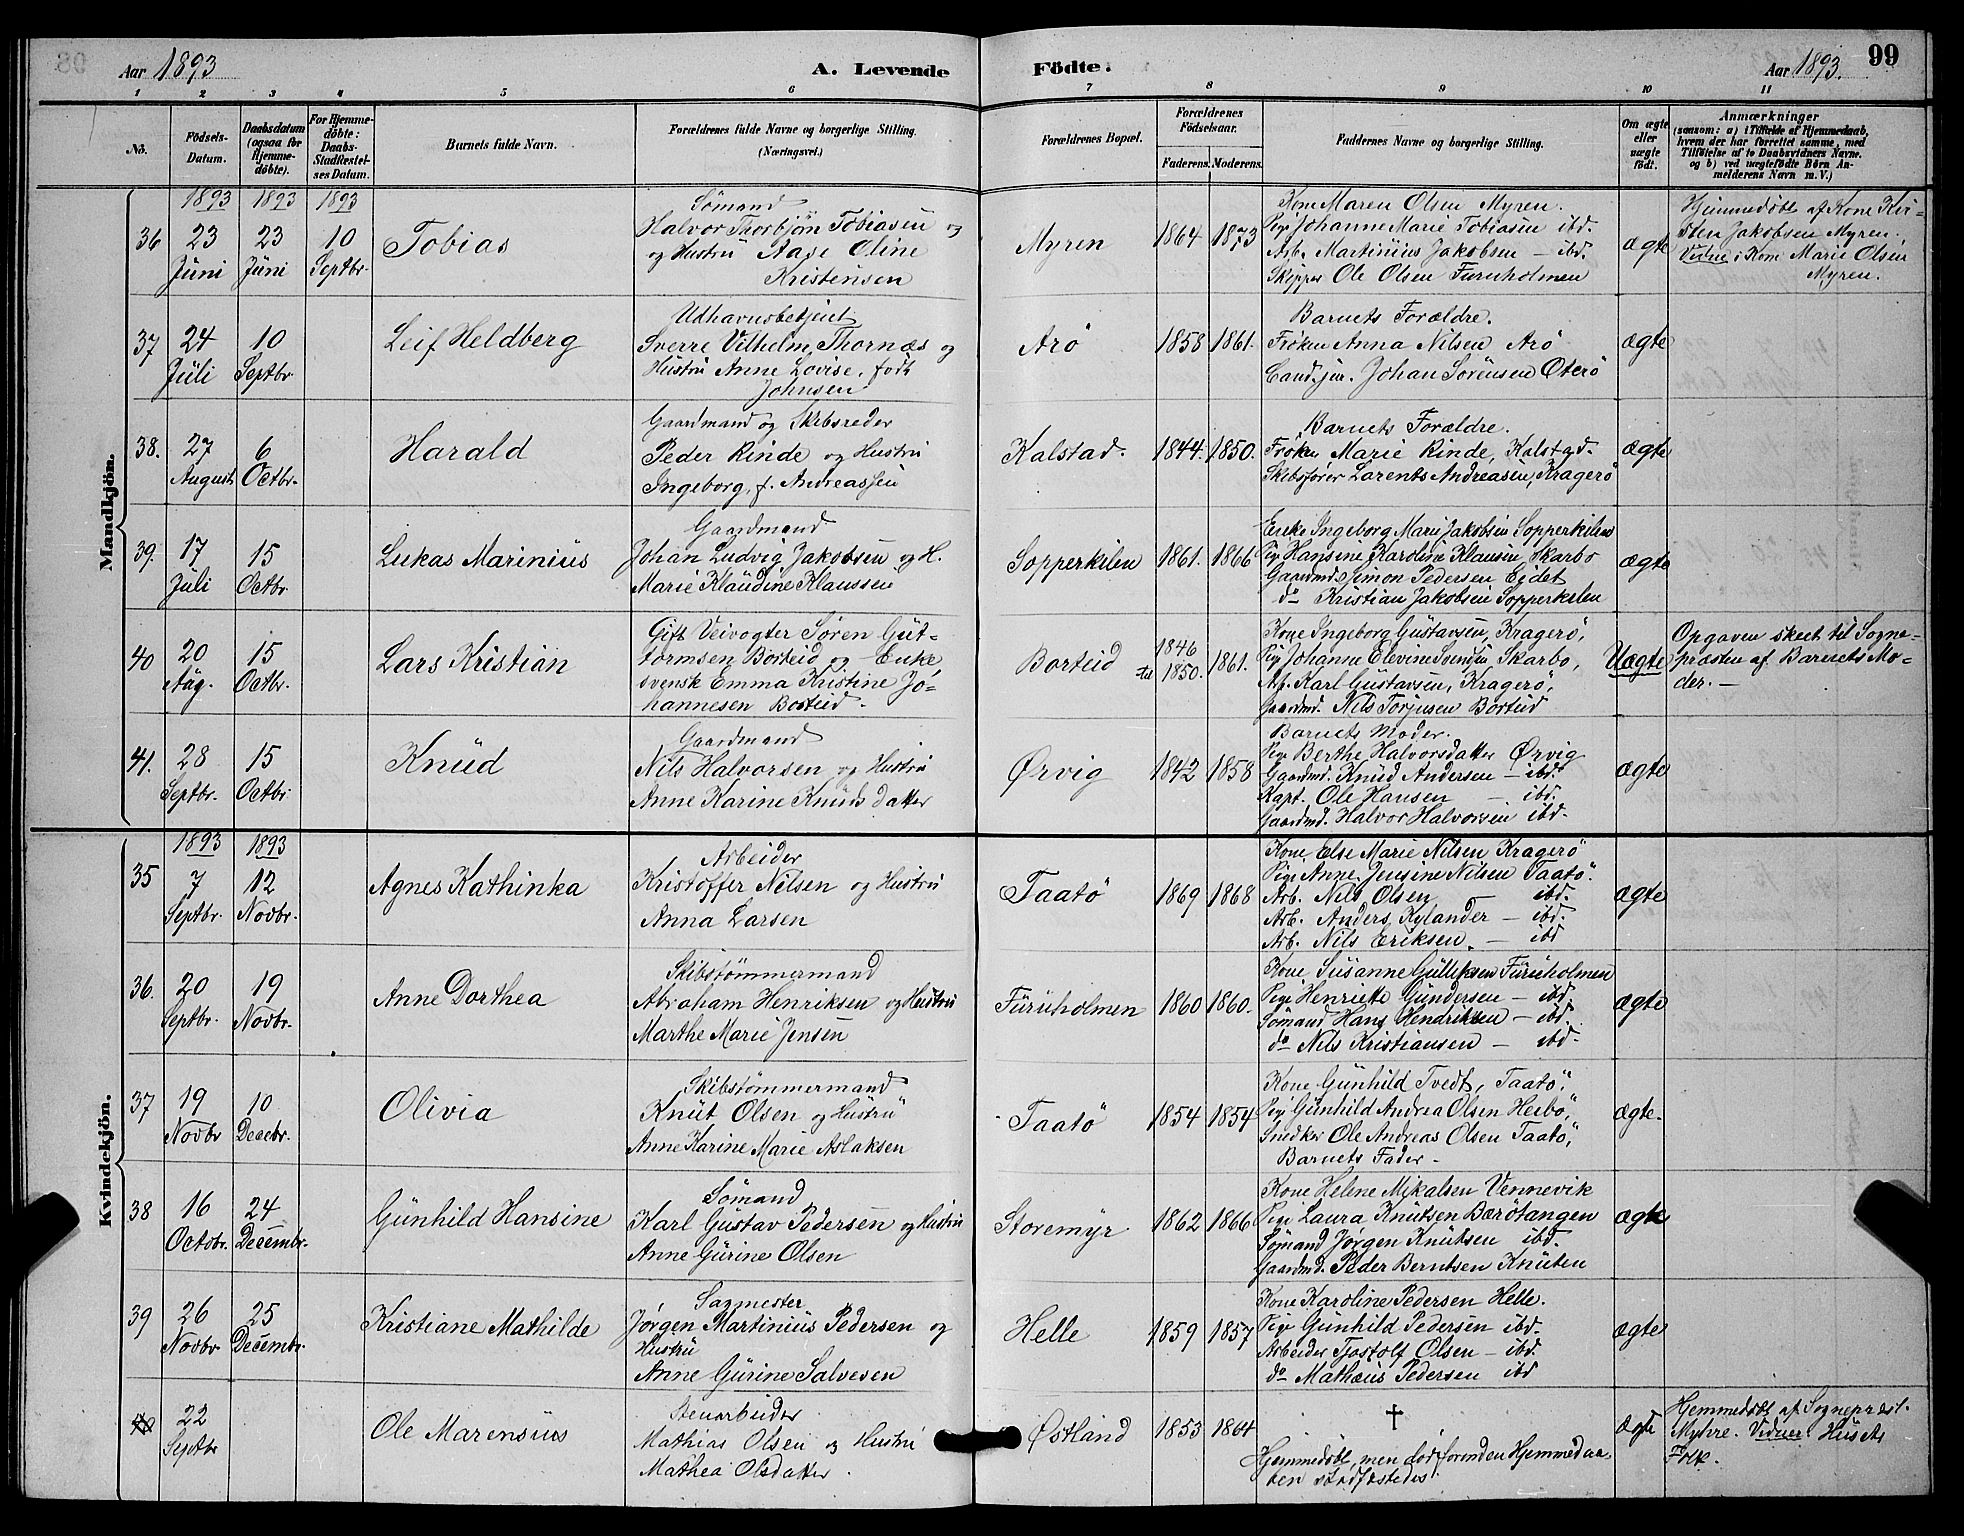 Aar 1893 A. Levende Födte. Aar 1893. 99
1 2 3 4 5 6 7 8 9 10 11
No. Födsels-Datum. Daabsdatum (ogsaa for Hjemme-döbte). For Hjemme-döbte: Daabs-Stadfæstel-ses Datum. Barnets fulde Navn. Forældrenes fulde Navne og borgerlige Stilling. (Næringsvei.) Forældrenes Bopæl. Forældrenes Födselsaar. Faderens. Moderens. Faddernes Navne og borgerlige Stilling. Om ægte eller uægte födt. Anmærkninger
(saasom: a) i Tilfælde af Hjemmedaab, hvem der har forrettet samme, med Tilföielse af to Daabsvidners Navne. og b) ved uægtefödte Börn An-melderens Navn m. V.)
Mandkjön.
1893 1893 1893
36 23 Juni 23 Juni 10 Septbr.
Tobias
Sømand
Halvor Thorbjön Tobiasen og
og Hustru Aase Oline
Kristensen
Myren 1864 1873
Kone Maren Olsen Myren.
Pige Johanne Marie Tobiasen ibd.
Arb. Martinius Jakobsen - ibd.
Skipper Ole Olsen Furuholmen
ægte
Hjemmedøbt af Kone Kir-
sten Jakobsen Myren.
Vidne: Kone Marie Olsen
Myren.
37 24 Juli 10 Septbr.
Leif Heldberg
Udhavnsbetjent
Sverre Vilhelm Thornæs og
Hustru Anne Lovise, født
Johnsen
Arö 1858 1861.
Barnets Forældre.
Frøken Anna Nilsen Arö
Cand. jur. Johan Sørensen Oterö
ægte
38. 27 August 6 Octbr.
Harald
Gaardmand og Skibsreder
Peder Rinde og Hustru
Ingeborg, f. Andreassen
Kalstad. 1844. 1850.
Barnets Forældre.
Frøken Marie Rinde, Kalstad.
Skibsfører Larents Andreasen, Kragerö
ægte
39. 17 Juli 15 Octbr.
Lukas Marinius
Gaardmand
Johan Ludvig Jakobsen og H.
Marie Klaudine Klaussen
Sopperkilen 1861. 1866
Enke Ingeborg Marie Jakobsen Sopperkilen
Pige Hansine Karoline Klausen, Skarbo
Gaardmd. Simon Pedersen Eidet
do Kristian Jakobsen Sopperkilen
ægte
40 20 Aug. 15 Octbr.
Lars Kristian
Gift Veivogter Søren Gut-
tormsen Borteid og Enke,
svensk Emma Kristine Jo-
hannesen Borteid.
Borteid 1846 til 1850. 1861.
Kone Ingeborg Gustavsen, Kragerö,
Pige Johanne Elevine Svensen, Skarbo,
Arb. Karl Gustavsen, Kragerö,
Gaardmd. Nils Torjusen Borteid
Uægte
Opgaven skeet til Sogne-
præsten af Barnets Mo-
der. —
41. 28 Septbr. 15 Octbr.
Knud
Gaardmand
Nils Halvorsen og Hustru
Anne Karine Knudsdatter
Ørvig 1842 1858
Barnets Moder.
Pige Berthe Halvorsdatter Ørvig
Gaardmd. Knud Andersen - ibd.
Kapt. Ole Hansen - ibd.
Gaardmd. Halvor Halvorsen ibd.
ægte
Kvindekjön.
1893 1893
35 7 Septbr. 12 Novbr.
Agnes Kathinka
Arbeider
Kristoffer Nilsen og Hustru
Anna Larsen
Taatö 1869 1868
Kone Else Marie Nilsen Kragerö
Pige Anne Jensine Nilsen Taatö.
Arb. Nils Olsen ibd.
Arb. Anders Kylander - ibd.
Arb. Nils Eriksen. - ibd
ægte
36. 20 Septbr. 19 Novbr.
Anne Dorthea
Skibstømmermand
Abraham Henriksen og Hustru
Marthe Marie Jensen
Furuholmen 1860 1860.
Kone Susanne Gulliksen Furuholmen
Pige Henriette Gundersen - ibd
Sømand Hans Hendriksen - ibd.
do Nils Kristiansen - ibd.
ægte
37 19 Novbr 10 Decebr.
Olivia
Skibstømmermand
Knut Olsen og Hustru
Anne Karine Marie Aslaksen
Taatö 1854 1854
Kone Gunhild Tvedt, Taatö,
Pige Gunhild Andrea Olsen Heibö,
Snedker Ole Andreas Olsen Taatö,
Barnets Fader.
ægte.
38 16 Octobr. 24 Decembr.
Gunhild Hansine
Sømand
Karl Gustav Pedersen og Hustru
Anne Gurine Olsen
Storemyr 1862 1866
Kone Helene Mikalsen Vennevik
Pige Laura Knutsen Bærötangen
Sømand Jørgen Knutsen ibd.
Gaardmd. Peder Berntsen Knuten
ægte
39 26 Novbr 25 Decembr.
Kristiane Mathilde
Sagmester
Jørgen Martinius Pedersen og
Hustru
Anne Gurine Salvesen
Helle 1859 1857
Kone Karoline Pedersen Helle.
Pige Gunhild Pedersen ibd.
Arbeider Tjostolf Olsen - ibd.
do Mathæus Pedersen ibd
ægte
40 22 Septbr
Ole Marensius
Stenarbeider
Mathias Olsen og Hustru
Mathea Olsdatter.
Østland 1853 1864
†
Hjemmedøbt, men død forinden Hjemmedaa-
ben stadfæstedes.
ægte
Hjemmedøbt af Sognepræst.
Myhre. Vidner: Husets
Folk.